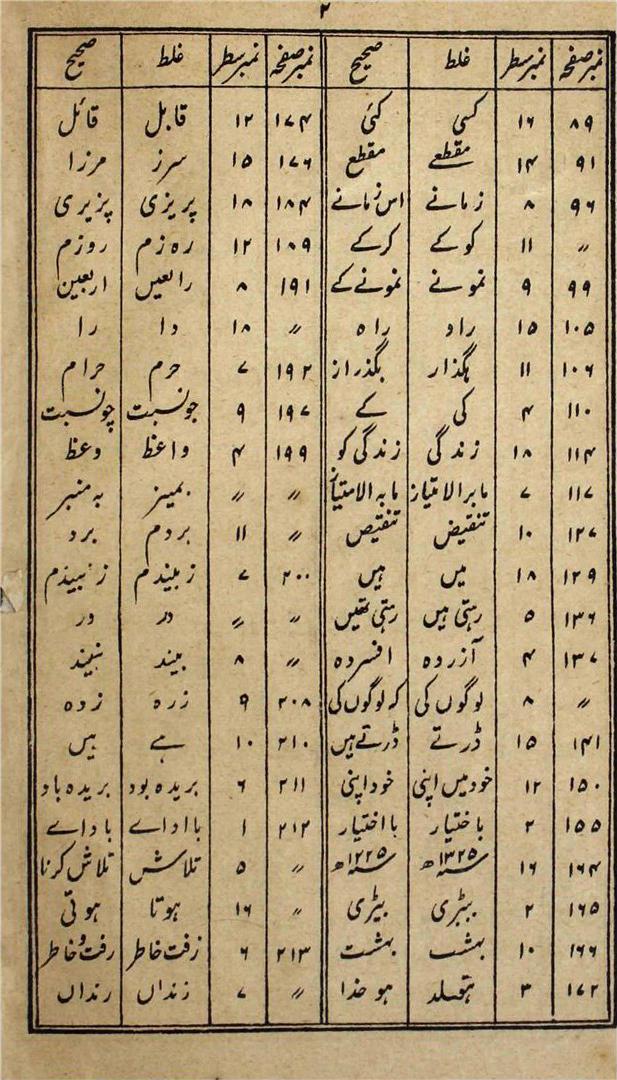 ۲
نمبر صفحہ نمبر سطر غلط صحیح نمبر صفحہ نمبر سطر غلط صحیح
۸۹ ۱۶ کسی کئی ۱۷۴ ۱۲ قابل قائل
۹۱ ۱۴ مقطعے مقطع ۱۷۶ ۱۵ سرز مرزا
۹۶ ۸ زمانے اس زمانے ۱۸۴ ۱۸ پریزی پزیری
〃 ۱۱ کو کے کر کے ۱۸۹ ۱۲ رہ زم روزم
۹۹ ۹ نمونے نمونے کے ۱۹۱ ۸ رابعیں اربعین
۱۰۵ ۱۵ راد راہ 〃 ۱۸ دا را
۱۰۶ ۱۱ ہگذار بگذراز ۱۹۲ ۷ حرم حرام
۱۱۰ ۴ کی کے ۱۹۷ ۹ جونسبت چونسبت
۱۱۴ ۱۸ زندگی زندگی کو ۱۹۹ ۴ واعظ وعظ
۱۱۷ ۷ مابر الامتیاز مابہ الامتیاز 〃 〃 بمینر بہ منبر
۱۲۷ ۱۰ تنقیض تنقیص 〃 ۱۱ بردم برد
۱۲۹ ۱۸ میں ہیں ۲۰۰ ۷ زبیندم
۱۳۶ ۵ رہتی ہیں رہتی تھیں 〃 〃 در
۱۳۷ ۴ آزردہ افسردہ 〃 ۸ بیند نبیند
〃 ۸ لوگوں کی کہ لوگوں کی ۲۰۸ ۹ زرہ زدہ
۱۴۱ ۱۵ ڈرتے ڈرتے ہیں ۲۱۰ ۱۰ ہے ہیں
۱۵۰ ۱۲ خود میں اپنی خود اپنی ۲۱۱ ۶ بریدہ بود بریدہ باد
۱۵۵ ۲ باختیار بااختیار ۲۱۲ ۱ بااداے باداے
۱۶۴ ۱۶ ۱۳۲۵؁ھ ۱۲۲۵؁ھ 〃 ۵ تلاش تلاش کرنا
۱۶۵ ۲ بیڑی 〃 ۱۶ ہوتا ہوتی
۱۶۶ ۱۰ بہشب بہشت ۲۱۳ ۶ زفت خاطر رفت و خاطر
۱۷۲ ۳ ہو خدا 〃 ۷ زنداں رنداں